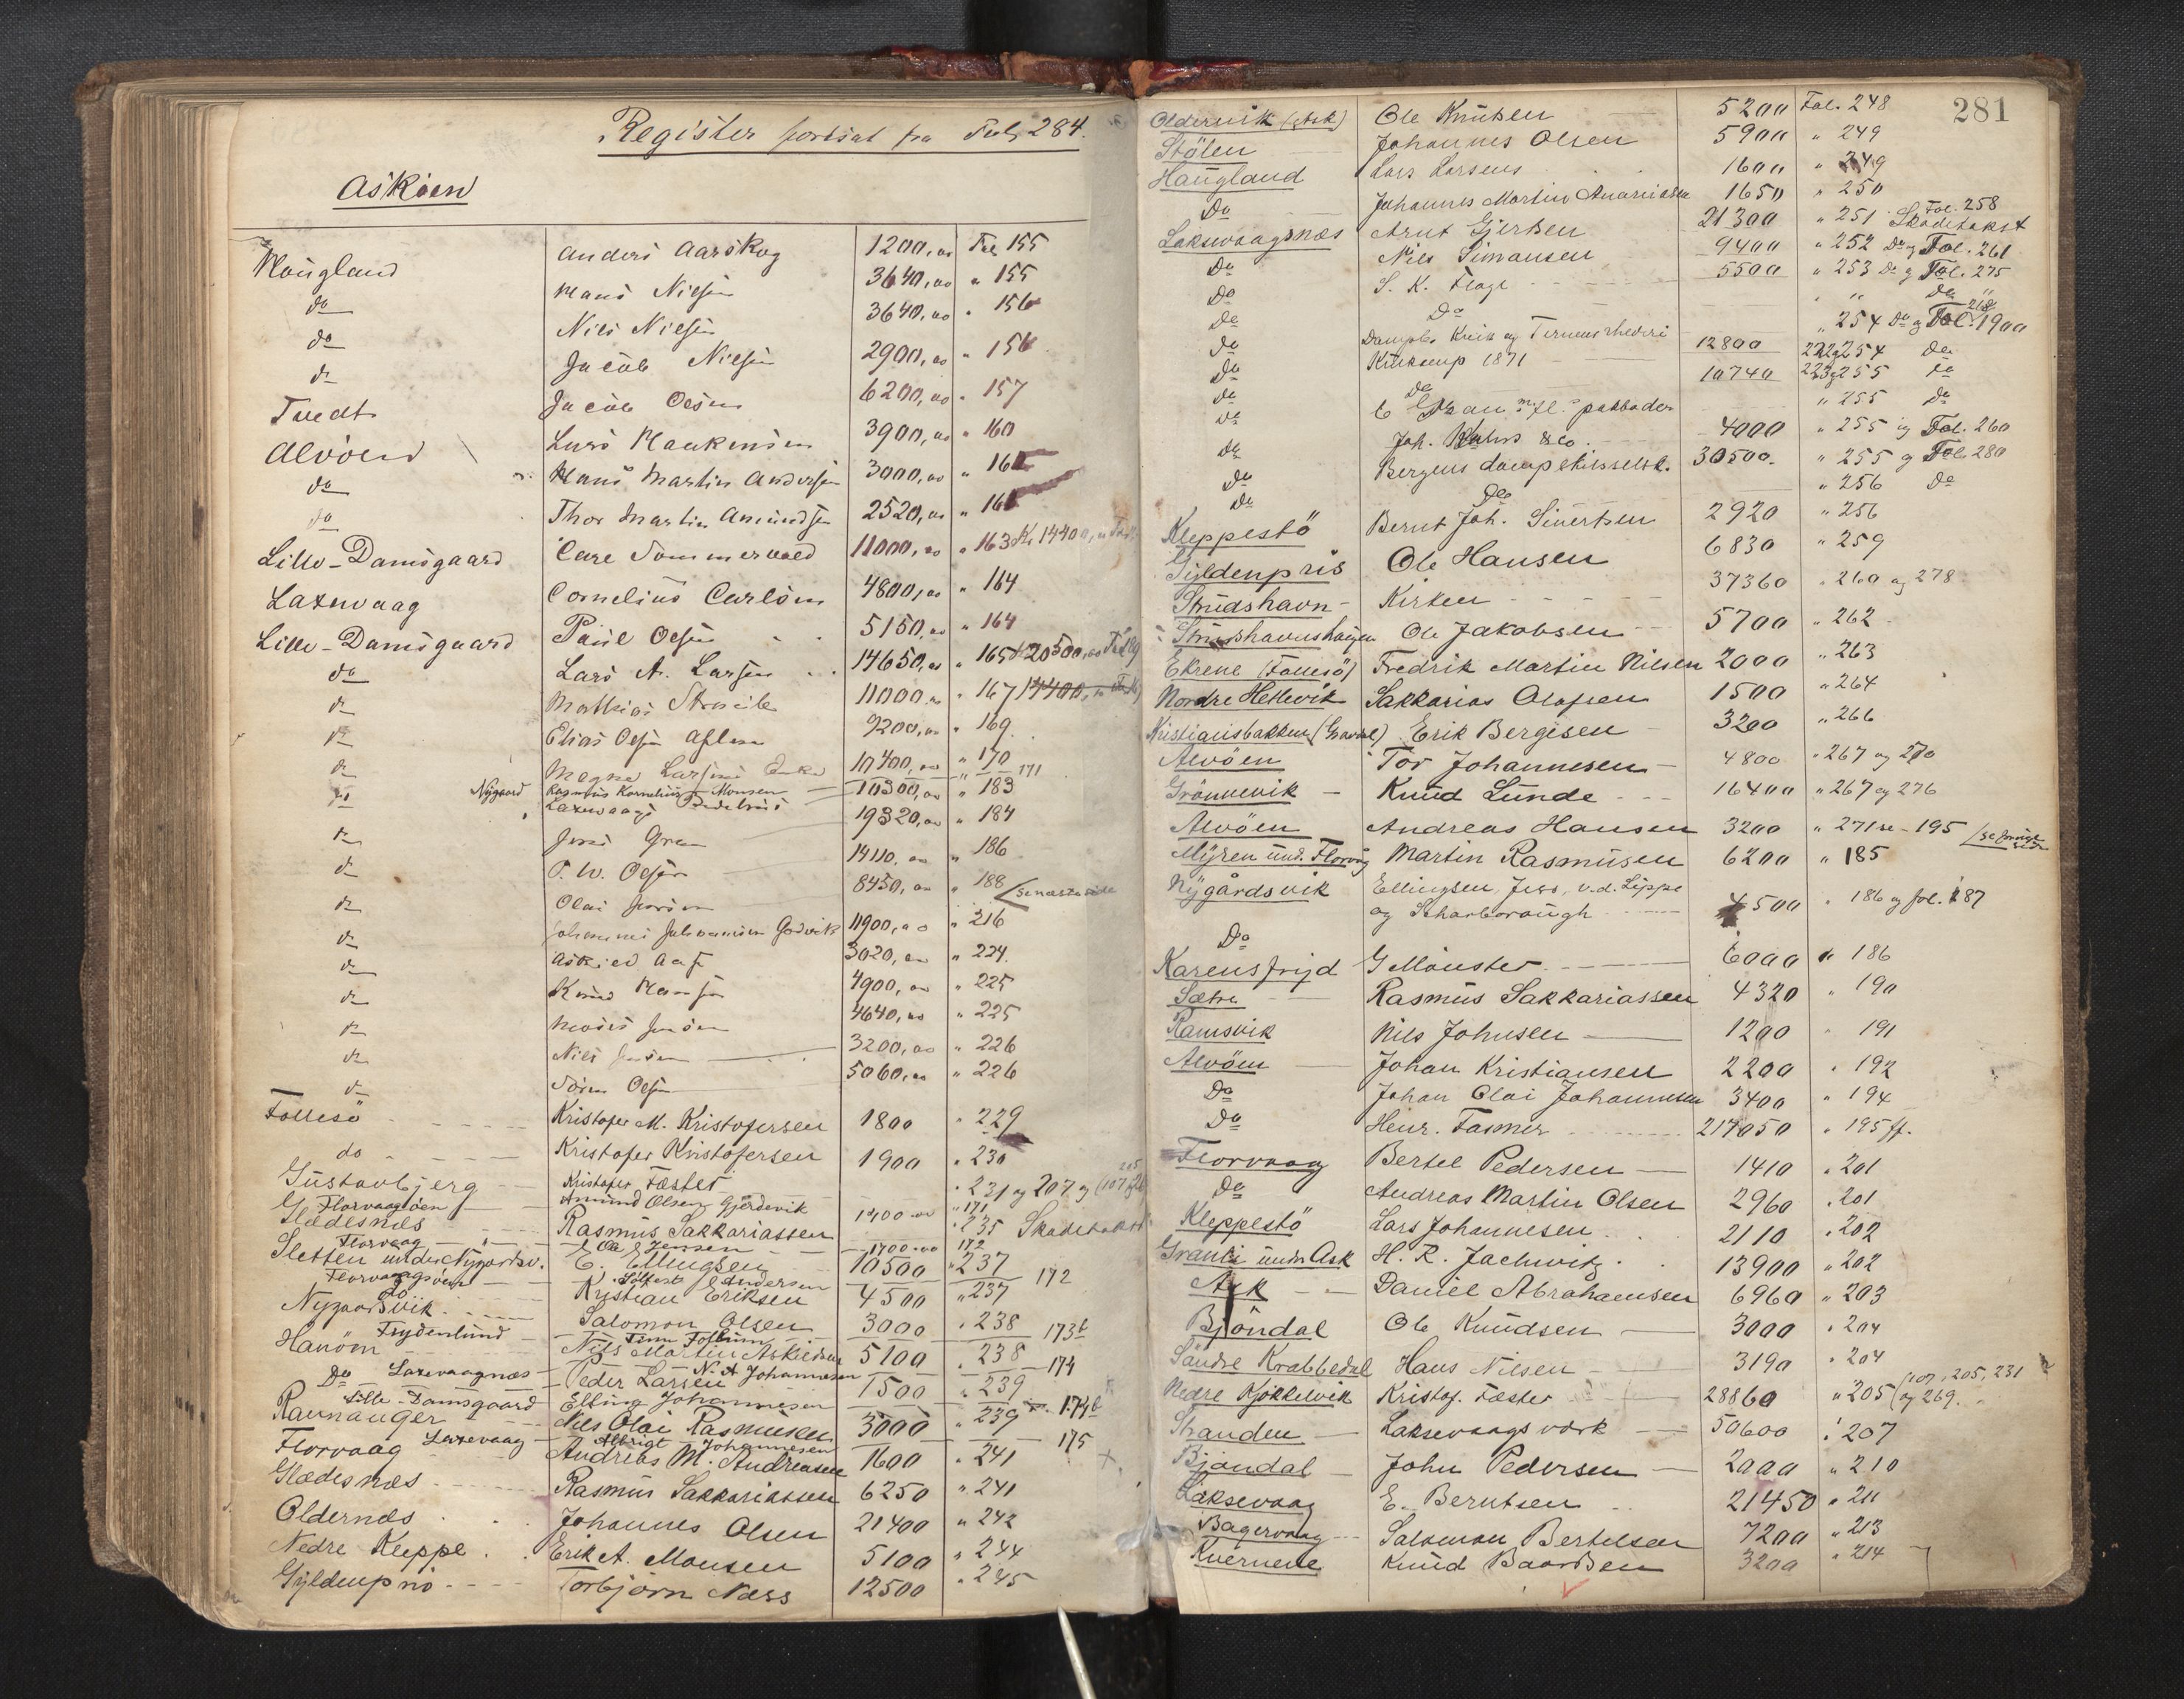 Register fortsat fra Fol. 284.
Askøen
Hougland Anders Aarskog 1200,00 Fol 155
do Hans Nilsen 3640,00 " 155
do Nils Nielsen 3640,00 " 156
do Jacob Nielsen 2900,00 " 156
Tvedt Jacob Olsen 6200,00 " 157
Alvöen Lars Haukensen 3900,00 " 160
do Hans Martin Andersen 3000,00 "
do Thor Martin Amundsen 2520,00 "
Lille-Damsgaard Carl Sommervold 11000,00 " 163 Kr 14400,
Laxevaag Cornelius Carlsen 4800,00 " 164
Lille-Damsgaard Paul Olsen 5150,00 " 164
do Lars A. Larsen 14650,00 " 165 20500,00
do Mathias 11000,00 " 167 14400,
do Elias Olsen 9200,00 " 169
do Magne Larsens Enke 10400,00 " 170
Nygaard Rasmus Kornelius Monsen " 171
do Laxevaags 10300,00 " 183
do Jens Gran 19320,00 " 184
do P. W. Olsen 14110,00 " 186
do Olai 8450,00 " 188 se næste side
do Johannes Johannesen Gjerdevik 11900,00 " 216
do Askild 3020,00 " 224
do Knud Hansen 4900,00 " 225
do Moses 4640,00 " 225
do Nils 3200,00 " 226
do Sören Olsen 5060,00 " 226
Follesö Kristofer M. Kristofersen 1800 " 229
do Kristofer Kristofersen 1900 " 230
Gustavbjerg Kristofer Fæster " 231 og 207 og
Florvaagöen Amund Olsen Gjerdevik 1400 00 " 171
Glædesnæs Rasmus Sakkariassen " 235 Skadetakst
Florvaag Ole Jensen 1700.00 172
Sletten under Nygardsv. E. Ellingsen 10500 " 237
Florvaagsöen Andersen 172
do Kristian Eriksen 4500 " 237
Nygaardsvik Salomon Olsen 3000 " 238
Frydenlund 173b
Hanöen Nils Martin Askildsen 5100 " 238
Laxevaagnæs N. A Johannesen 174
Do Peder Larsen 1500 " 239
Lille-Damsgaard Elling Johannesen 174b
Ravnanger Nils Olai Rasmussen 3000 " 239
Laxevaag Albrigt Johannesen 175
Florvaag Andreas M. Andreasen 1600 " 241
Glædesnæs Rasmus Sakkariassen 6250 " 241
Oldernæs Johannes Olsen 21400 " 242
Nedre Kleppe Erik A. Monsen 5100 " 244
Gyldenpris Torbjörn Næss 12500 " 245
281
Oldervik (Ask) Ole Knutsen 5200 Fol. 248
Stölen Johannes Olsen 5900 " 249
Haugland Lars Larsens 1600 " 249
Do Johannes Martin Ananiasen 1650 " 250
Laksevaagsnæs Arnt Gjertsen 21300 " 251 Fol. 258 Skadetakst
Do Nils Simonsen 9400 " 252 Do og Fol. 261
Do S. K. Flage 5500 " 253 Do og Fol. 275
Do Do " " Do "
Do Dampsk. Kreis og Ternens Rhederi " 254 Do og Fol. 268
Do Kulkomp 1871 12800 254 Do
Do do 10740 255 Do
Do C Gran m. fl. pakboder " 255 Do
Do Joh. & Co. 4000 " 255 og Fol. 260
Do Bergens dampskibsselsk. 30500 " 255 og Fol. 280
Do Do " 256 Do
Kleppestö Bernt Joh. Sivertsen 2920 " 256
Gyldenpris Ole Hansen 6830 " 259
Strudshavn Kirken 37360 " 260 og 278
Strudshavnshaugen Ole Jakobsen 5700 " 262
Ekrene (Follesö) Fredrik Martin Nilsen 2000 " 263
Nordre Hetlevik Sakkarias Olafsen 1500 " 264
Kristiansbakken (Gravdal) Erik Bergesen 3200 " 266
Alvöen Tor Johannesen 4800 " 267 og 270
Grönnevik Knud Lunde 16400 " 267 og 276
Alvöen Andreas Hansen 3200 " 271 se 195
Myren und. Florvåg Martin Rasmusen 6200 " 185
Nygårdsvik Ellingsen, Jess, v.d. Lippe
og Scharborough 4500 " 186 og fol. 187
Do
Karensfryd G Mönster 6000 " 186
Sætre Rasmus Sakkariassen 4320 " 190
Ramsvik Nils Johnsen 1200 " 191
Alvöen Johan Kristiansen 2200 " 192
Do Johan Olai Johannesen 3400 " 194
Do Henr. Fasmer 217050 " 195 ff.
Florvaag Bertel Pedersen 1410 " 201
Do Andreas Martin Olsen 2960 " 201
Kleppestö Lars Johannesen 2110 " 202
Granli under Ask H. R. Jachwitz 13900 " 202
Ask Daniel Abrahamsen 6960 " 203
Björndal Ole Knudsen 3000 " 204
Söndre Krabbedal Hans Nilsen 3190 " 204
Nedre Kjökkelvik Kristof. Fæster 28860 " 205 (107, 205, 231 og 269.
Stranden Laksevaags værk 50600 " 207
Björndal John Pedersen 2000 " 210
Laksevaag E. Berntsen 21450 " 211
Bagervaag Salomon Bertelsen 7200 " 213
Kvernene Knud Baardsen 3200 " 214